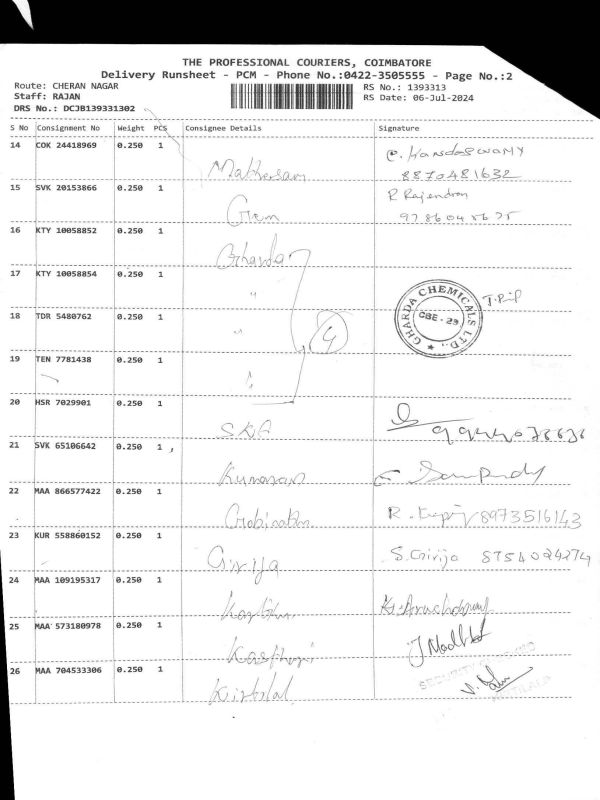 THE PROFESSIONAL COURIERS, COIMBATORE
Delivery Runsheet - PCM - Phone No.:0422-3505555 - Page No.:2
Route: CHERAN NAGAR
Staff: RAJAN
DRS No.: DCJB139331302
RS No.: 1393313
RS Date: 06-Jul-2024
S No Consignment No Weight PCS Consignee Details Signature
14 COK 24418969 0.250 1
8870481632
15 SVK 20153866 0.250 1 R Rajendran
16 KTY 10058852 0.250 1 Gharda
17 KTY 10058854 0.250 1 "
18 TDR 5480762 0.250 1 " 4
GHARDA CHEMICALS LTD., CBE - 29
19 TEN 7781438 0.250 1 "
20 HSR 7029901 0.250 1 SKA
21 SVK 65106642 0.250 1 Kumaran
22 MAA 866577422 0.250 1 Gobinathan R. 8973516143
23 KUR 558860152 0.250 1 Girija S. Girija 8754024274
24 MAA 109195317 0.250 1
25 MAA 573180978 0.250 1 Kasthuri
26 MAA 704533306 0.250 1
SECURITY